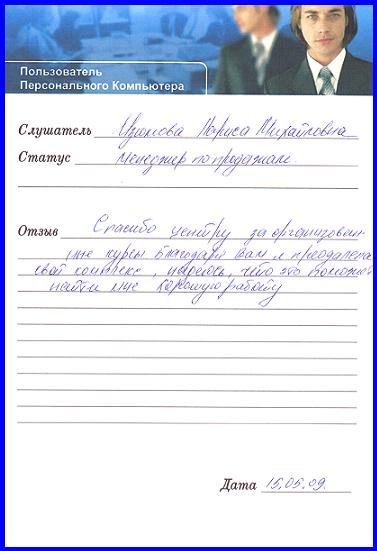 Пользователь
Персонального Компьютера
Слушатель Изюмова Лариса Михайловна
Статус менеджер по продажам.
Отзыв Спасибо центру за организован-
ные курсы благодаря Вам я преодалела
свой комплекс, надеюсь, что это поможет
найти мне хорошую работу
Дата 15.05.09.